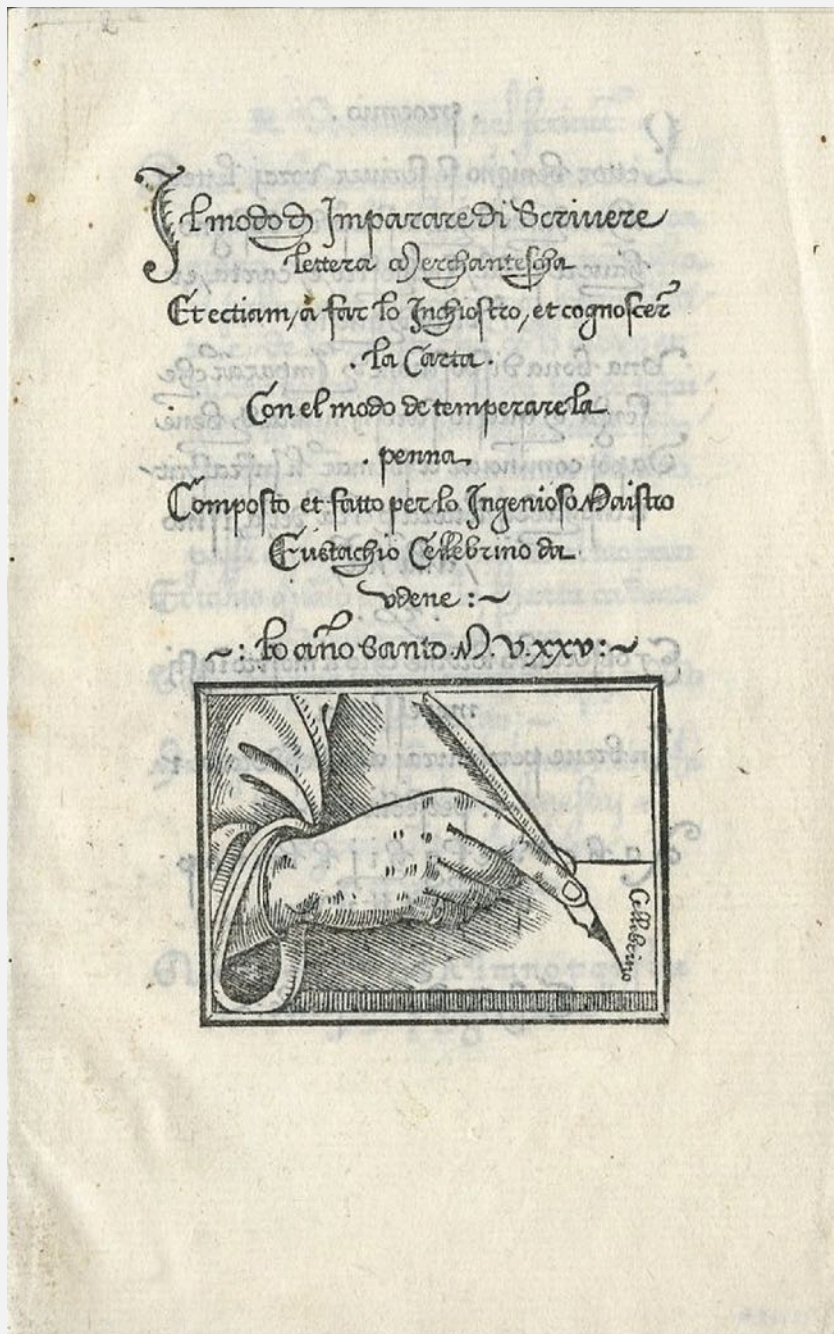 Il modo di Imparare di Scriuere
lettera Merchantescha
Et ectiam, a far lo Inchiostro, et cognoscer̃
. la Carta .
Con el modo de temperare la
. penna .
Composto et fatto per lo Ingenioso Maistro
Eustachio Cellebrino da
vdene :~
~: lo año Santo .M.V.xxv :~
Cellebrino